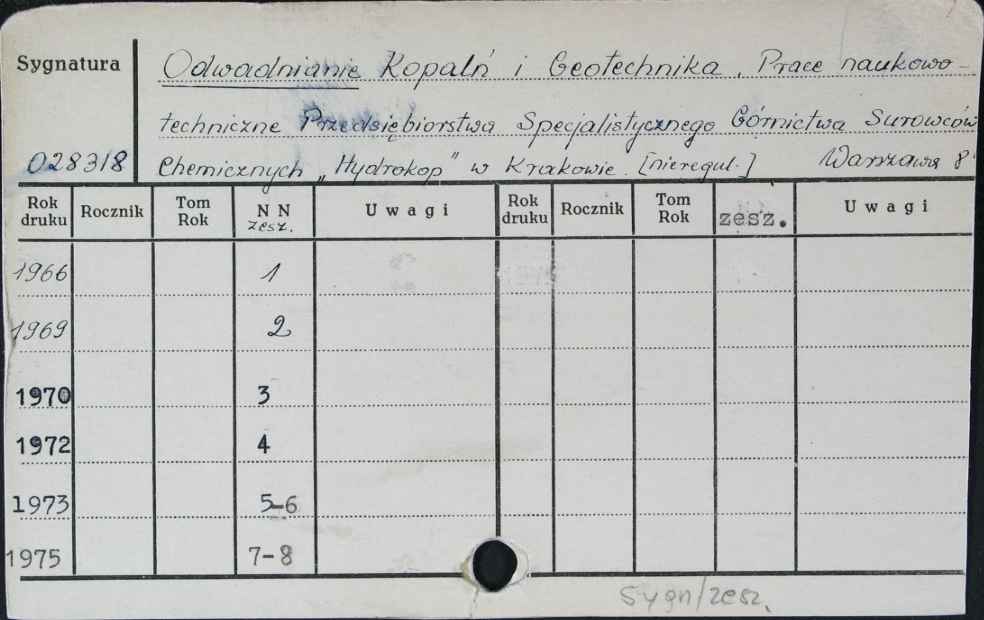 Sygnatura Odwadnianie Kopalń i Geotechnika. Prace naukowo-
techniczne Przedsiębiorstwa Specjalistycznego Górnictwa Surowców
028318 Chemicznych "Hydrokop" w Krakowie. [nieregul.] Warszawa 8°
Rok druku Rocznik Tom Rok NN zesz. Uwagi Rok druku Rocznik Tom Rok zesz. Uwagi
1966 1
1969 2
1970 3
1972 4
1973 5-6
1975 7-8
Sygn/zesz.